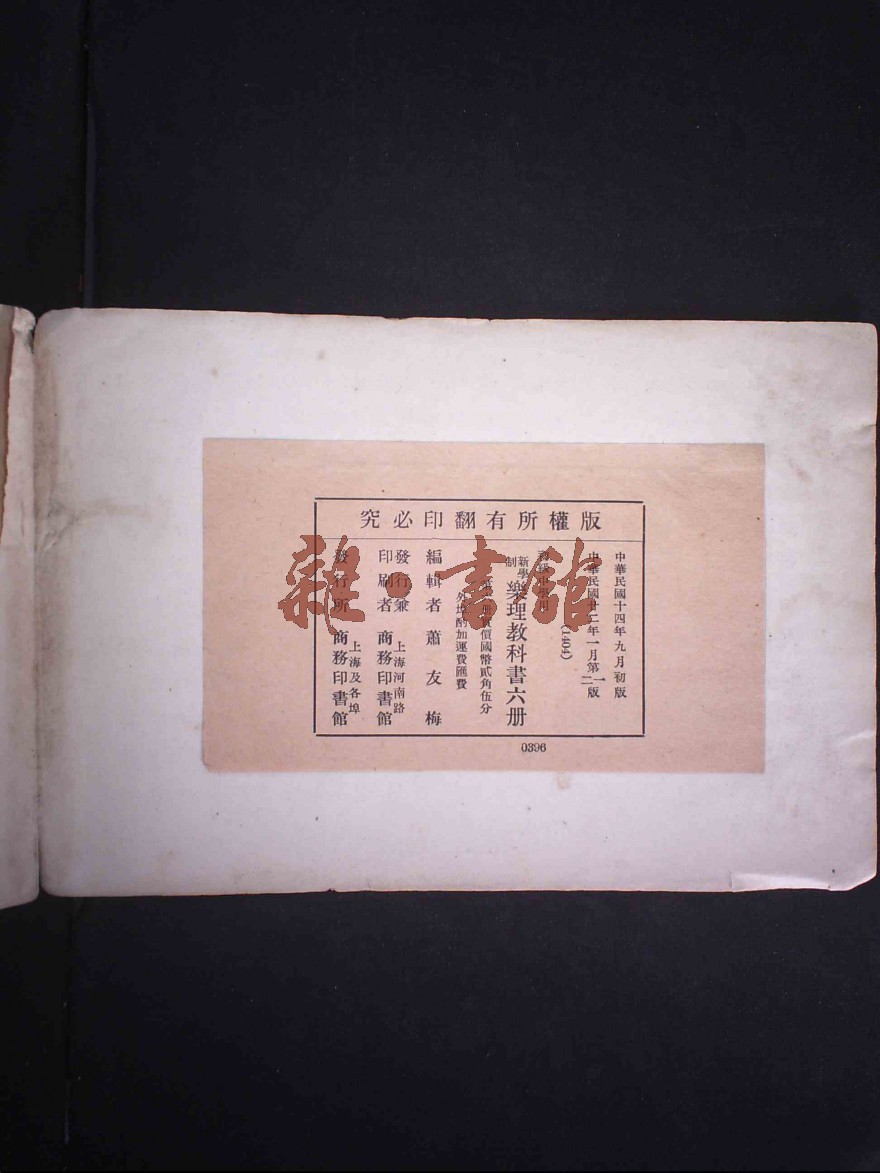 版權所有翻印必究
中華民國十四年九月初版
中華民國廿二年一月第一版
(1404)
新學制樂理教科書六册
價國幣貳角伍分
外埠酌加運費匯費
編輯者 蕭友梅
發行兼印刷者 上海河南路 商務印書館
發行所 上海及各埠 商務印書館
0396
雜·書館